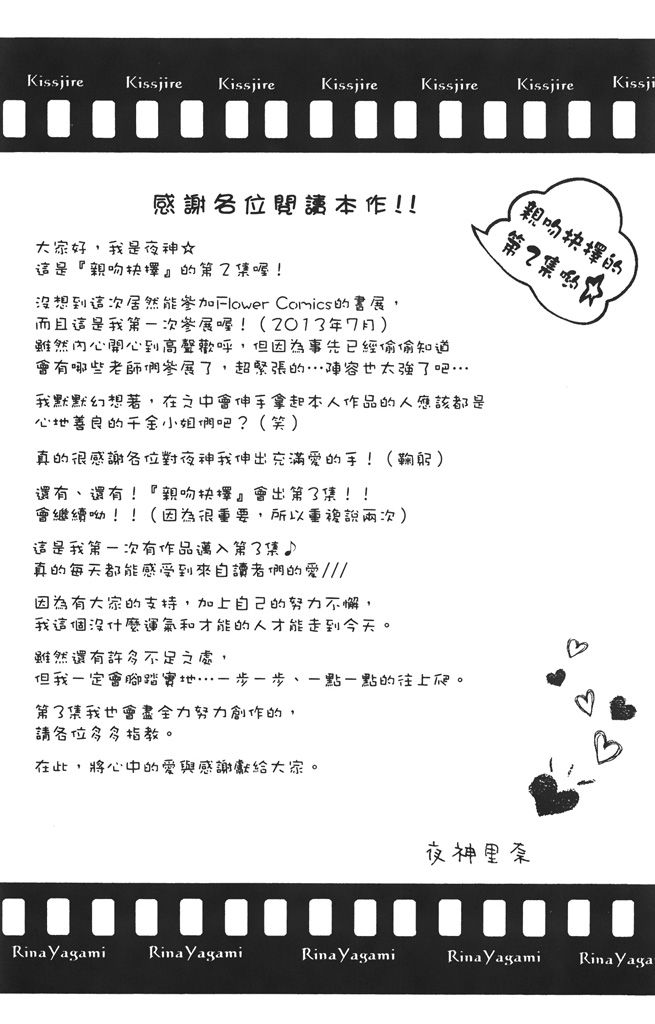 Kissjire Kissjire Kissjire Kissjire Kissjire Kissjire Kissji
感謝各位閱讀本作!!
親吻抉擇的
第2集喲☆
大家好，我是夜神☆
這是『親吻抉擇』的第2集喔！
沒想到這次居然能參加Flower Comics的書展，
而且這是我第一次參展喔！（2013年7月）
雖然內心開心到高聲歡呼，但因為事先已經偷偷知道
會有哪些老師們參展了，超緊張的…陣容也太強了吧…
我默默幻想著，在之中會伸手拿起本人作品的人應該都是
心地善良的千金小姐們吧？（笑）
真的很感謝各位對夜神我伸出充滿愛的手！（鞠躬）
還有、還有！『親吻抉擇』會出第3集！！
會繼續呦！！（因為很重要，所以重複說兩次）
這是我第一次有作品邁入第3集♪
真的每天都能感受到來自讀者們的愛///
因為有大家的支持，加上自己的努力不懈，
我這個沒什麼運氣和才能的人才能走到今天。
雖然還有許多不足之處，
但我一定會腳踏實地…一步一步、一點一點的往上爬。
第3集我也會盡全力努力創作的，
請各位多多指教。
在此，將心中的愛與感謝獻給大家。
夜神里奈
RinaYagami RinaYagami RinaYagami RinaYagami RinaYaga